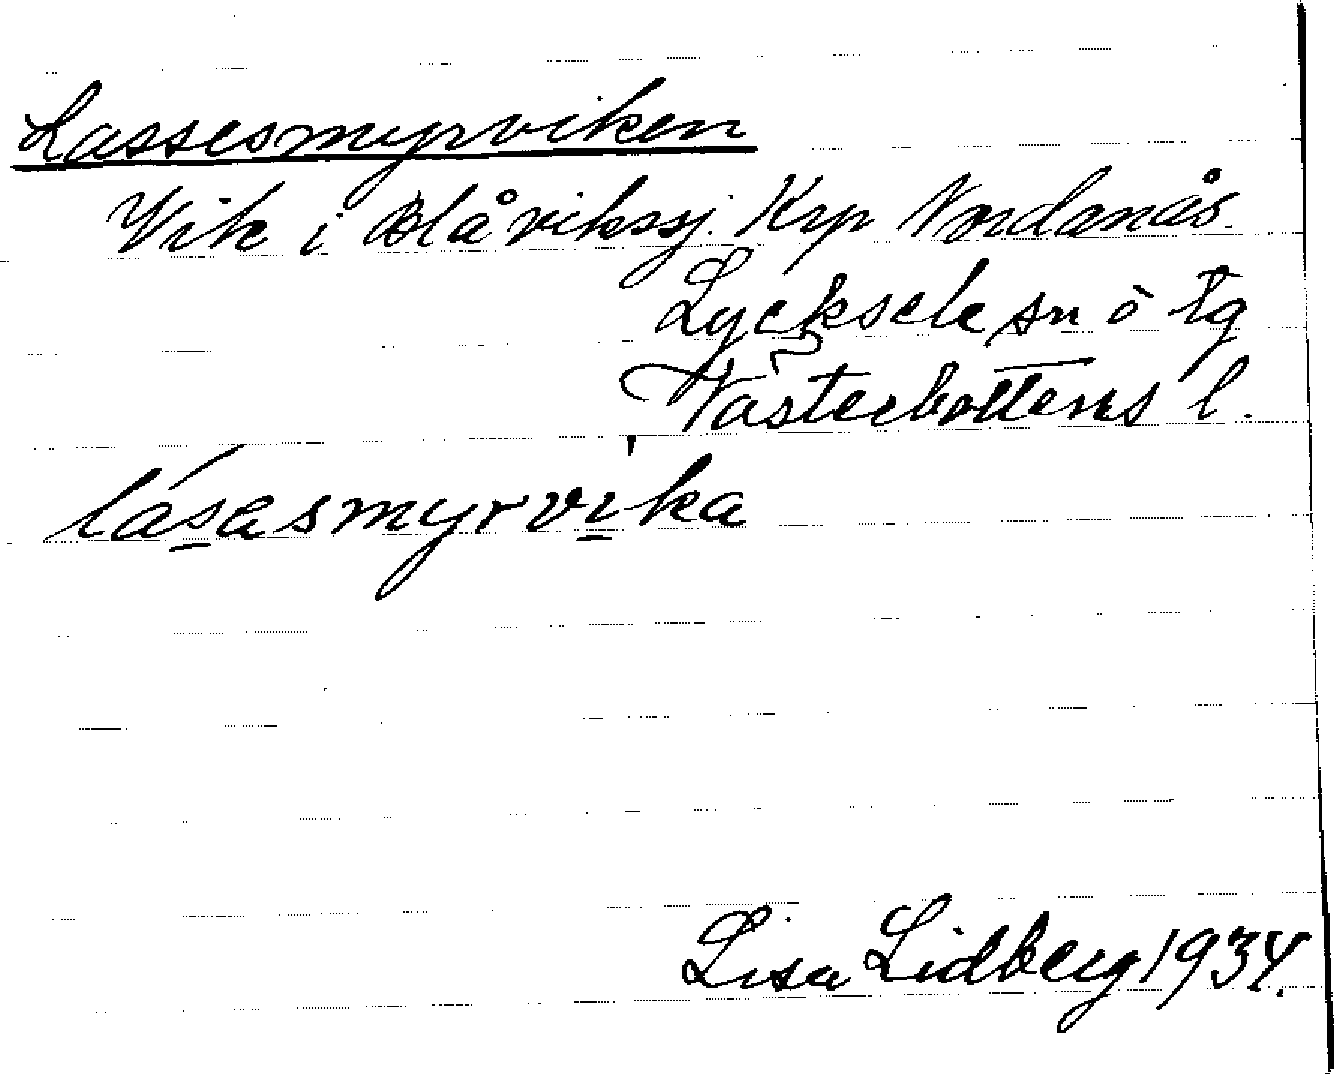 Lassesmyrviken
Vik i Blåviksj. Krp Nordanås.
Lycksele sn o tg
Västerbottens l.
lásasmyrvika
Lisa Lidberg 1934.